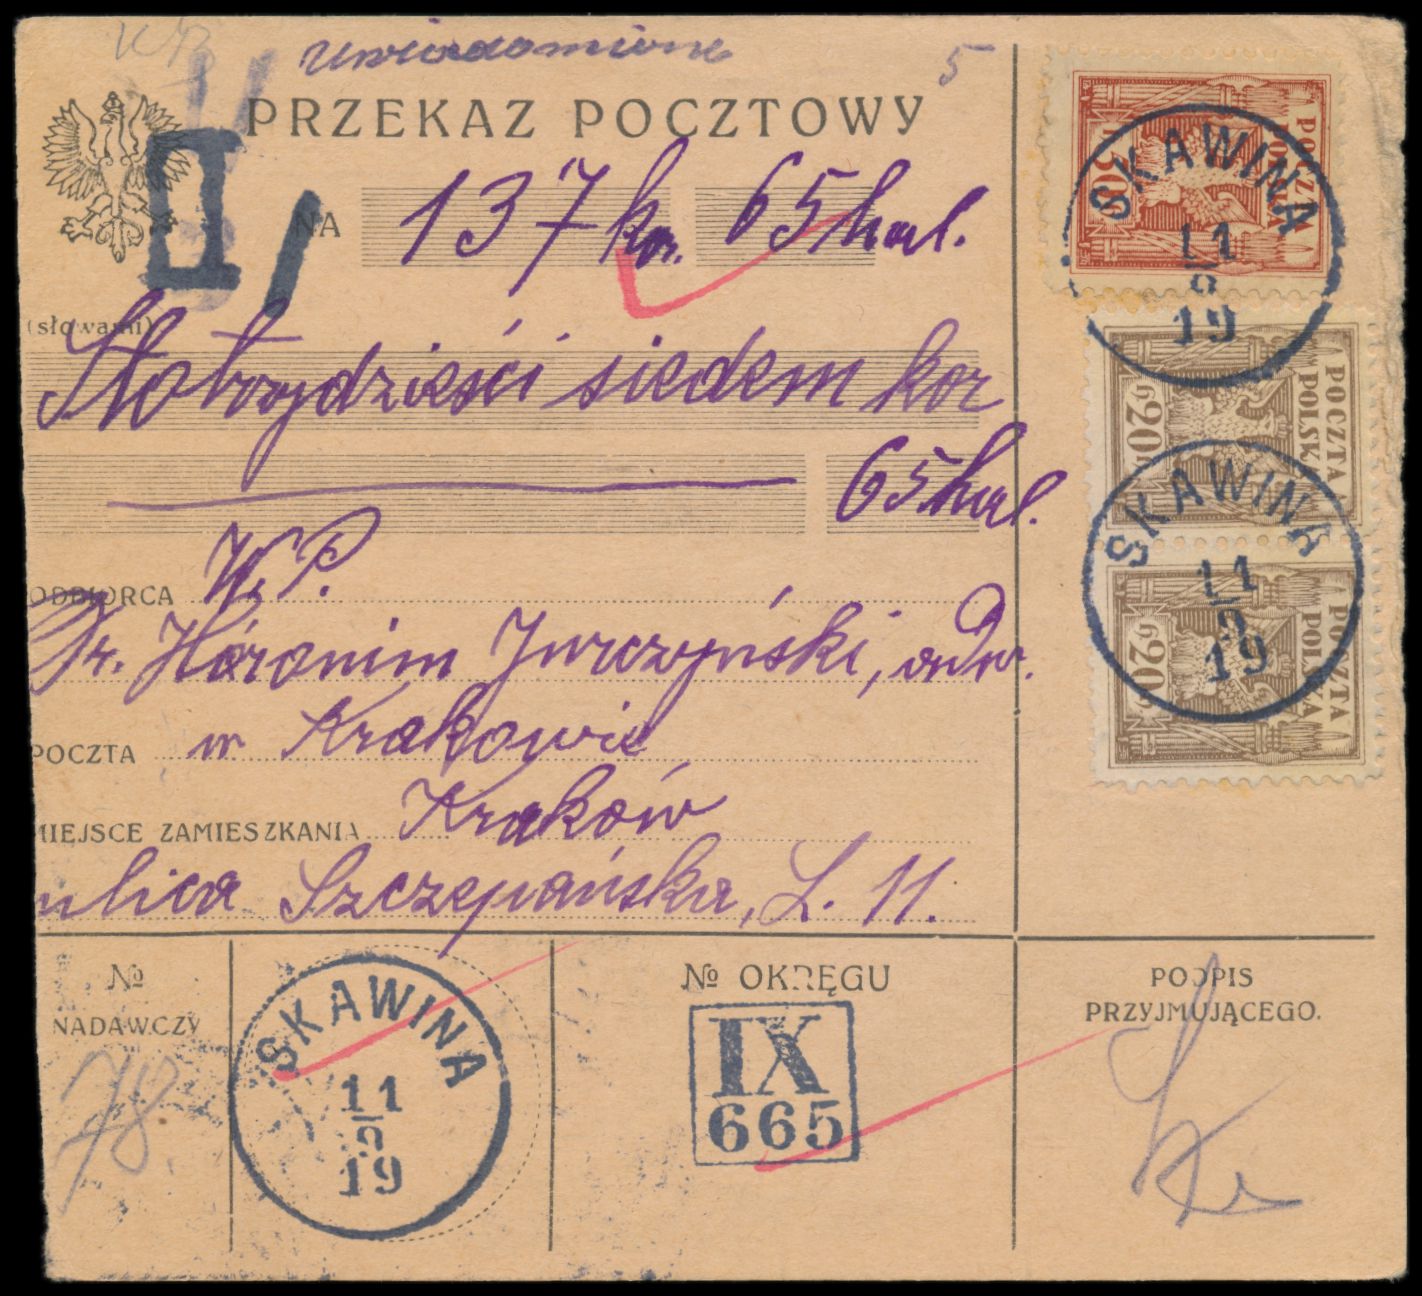 uwiadomione 5
PRZEKAZ POCZTOWY
II
NA 137 kor. 65 hal.
(słowami)
Stotrzydzieści siedem kor
65 hal.
W. P.
ODBIORCA
Dr. Hieronim Jurczyński, adw.
POCZTA w Krakowie
MIEJSCE ZAMIESZKANIA Kraków
ulica Szczepańska, L. 11.
№
NADAWCZY
78
SKAWINA
11
19
№ OKRĘGU
IX
665
PODPIS
PRZYJMUJĄCEGO.
POCZTA
POLSKA
50
SKAWINA
11
19
POCZTA
POLSKA
20
SKAWINA
11
19
POCZTA
POLSKA
20